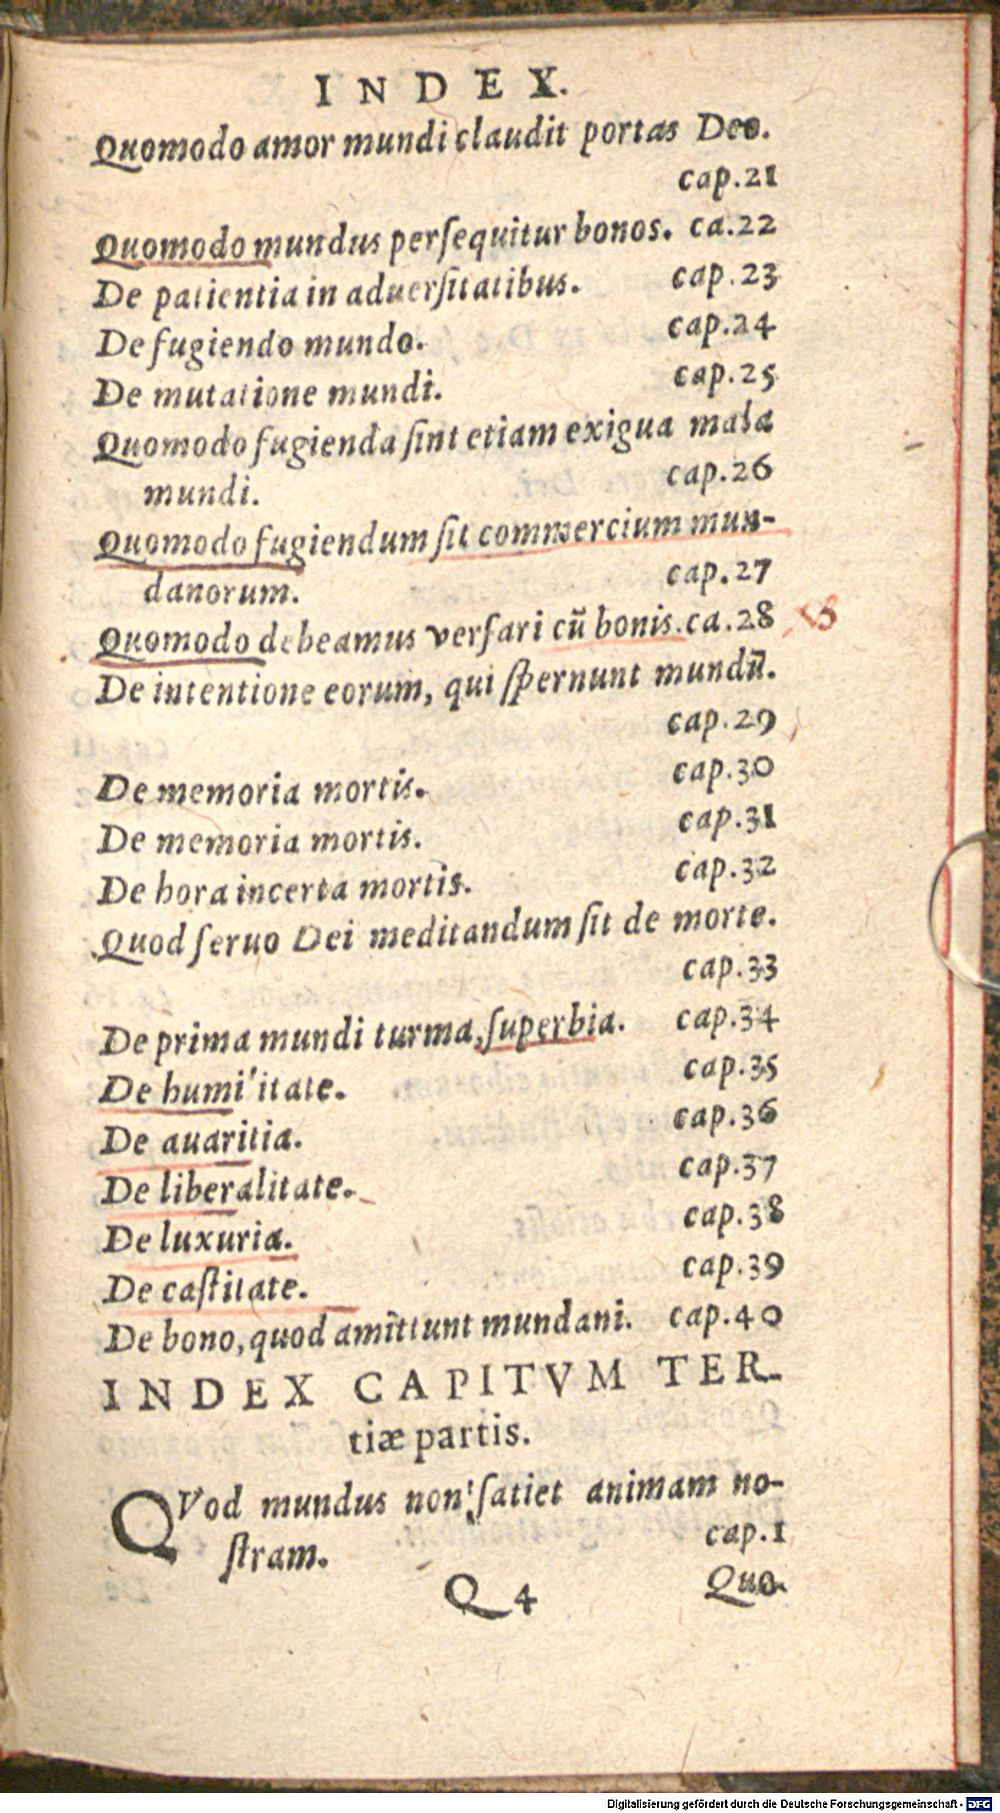 INDEX.
Quomodo amor mundi claudit portas Deo.
cap.21
Quomodo mundus perſequitur bonos. ca.22
De patientia in aduerſitatibus. cap.23
De fugiendo mundo. cap.24
De mutatione mundi. cap.25
Quomodo fugienda ſint etiam exigua mala
mundi. cap.26
Quomodo fugiendum ſit commercium mun-
danorum. cap.27
Quomodo debeamus verſari cũ bonis. ca.28
De intentione eorum, qui ſpernunt mundũ.
cap.29
De memoria mortis. cap.30
De memoria mortis. cap.31
De hora incerta mortis. cap.32
Quod ſeruo Dei meditandum ſit de morte.
cap.33
De prima mundi turma, ſuperbia. cap.34
De humilitate. cap.35
De auaritia. cap.36
De liberalitate. cap.37
De luxuria. cap.38
De caſtitate. cap.39
De bono, quod amittunt mundani. cap.40
INDEX CAPITVM TER-
tiæ partis.
QVod mundus non ſatiet animam no-
ſtram. cap.1
Q 4 Quo-
Digitalisierung gefördert durch die Deutsche Forschungsgemeinschaft - DFG